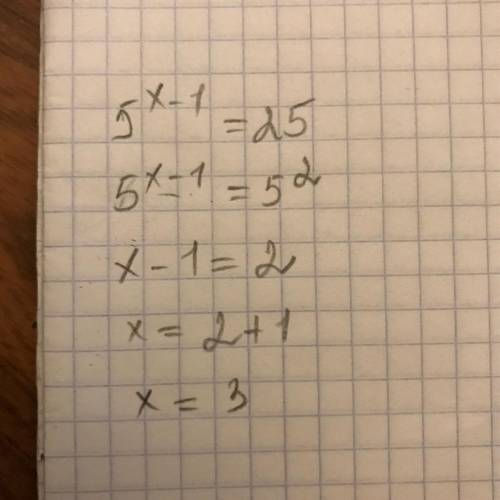 5^{x-1} = 25
5^{x-1} = 5^2
x - 1 = 2
x = 2 + 1
x = 3